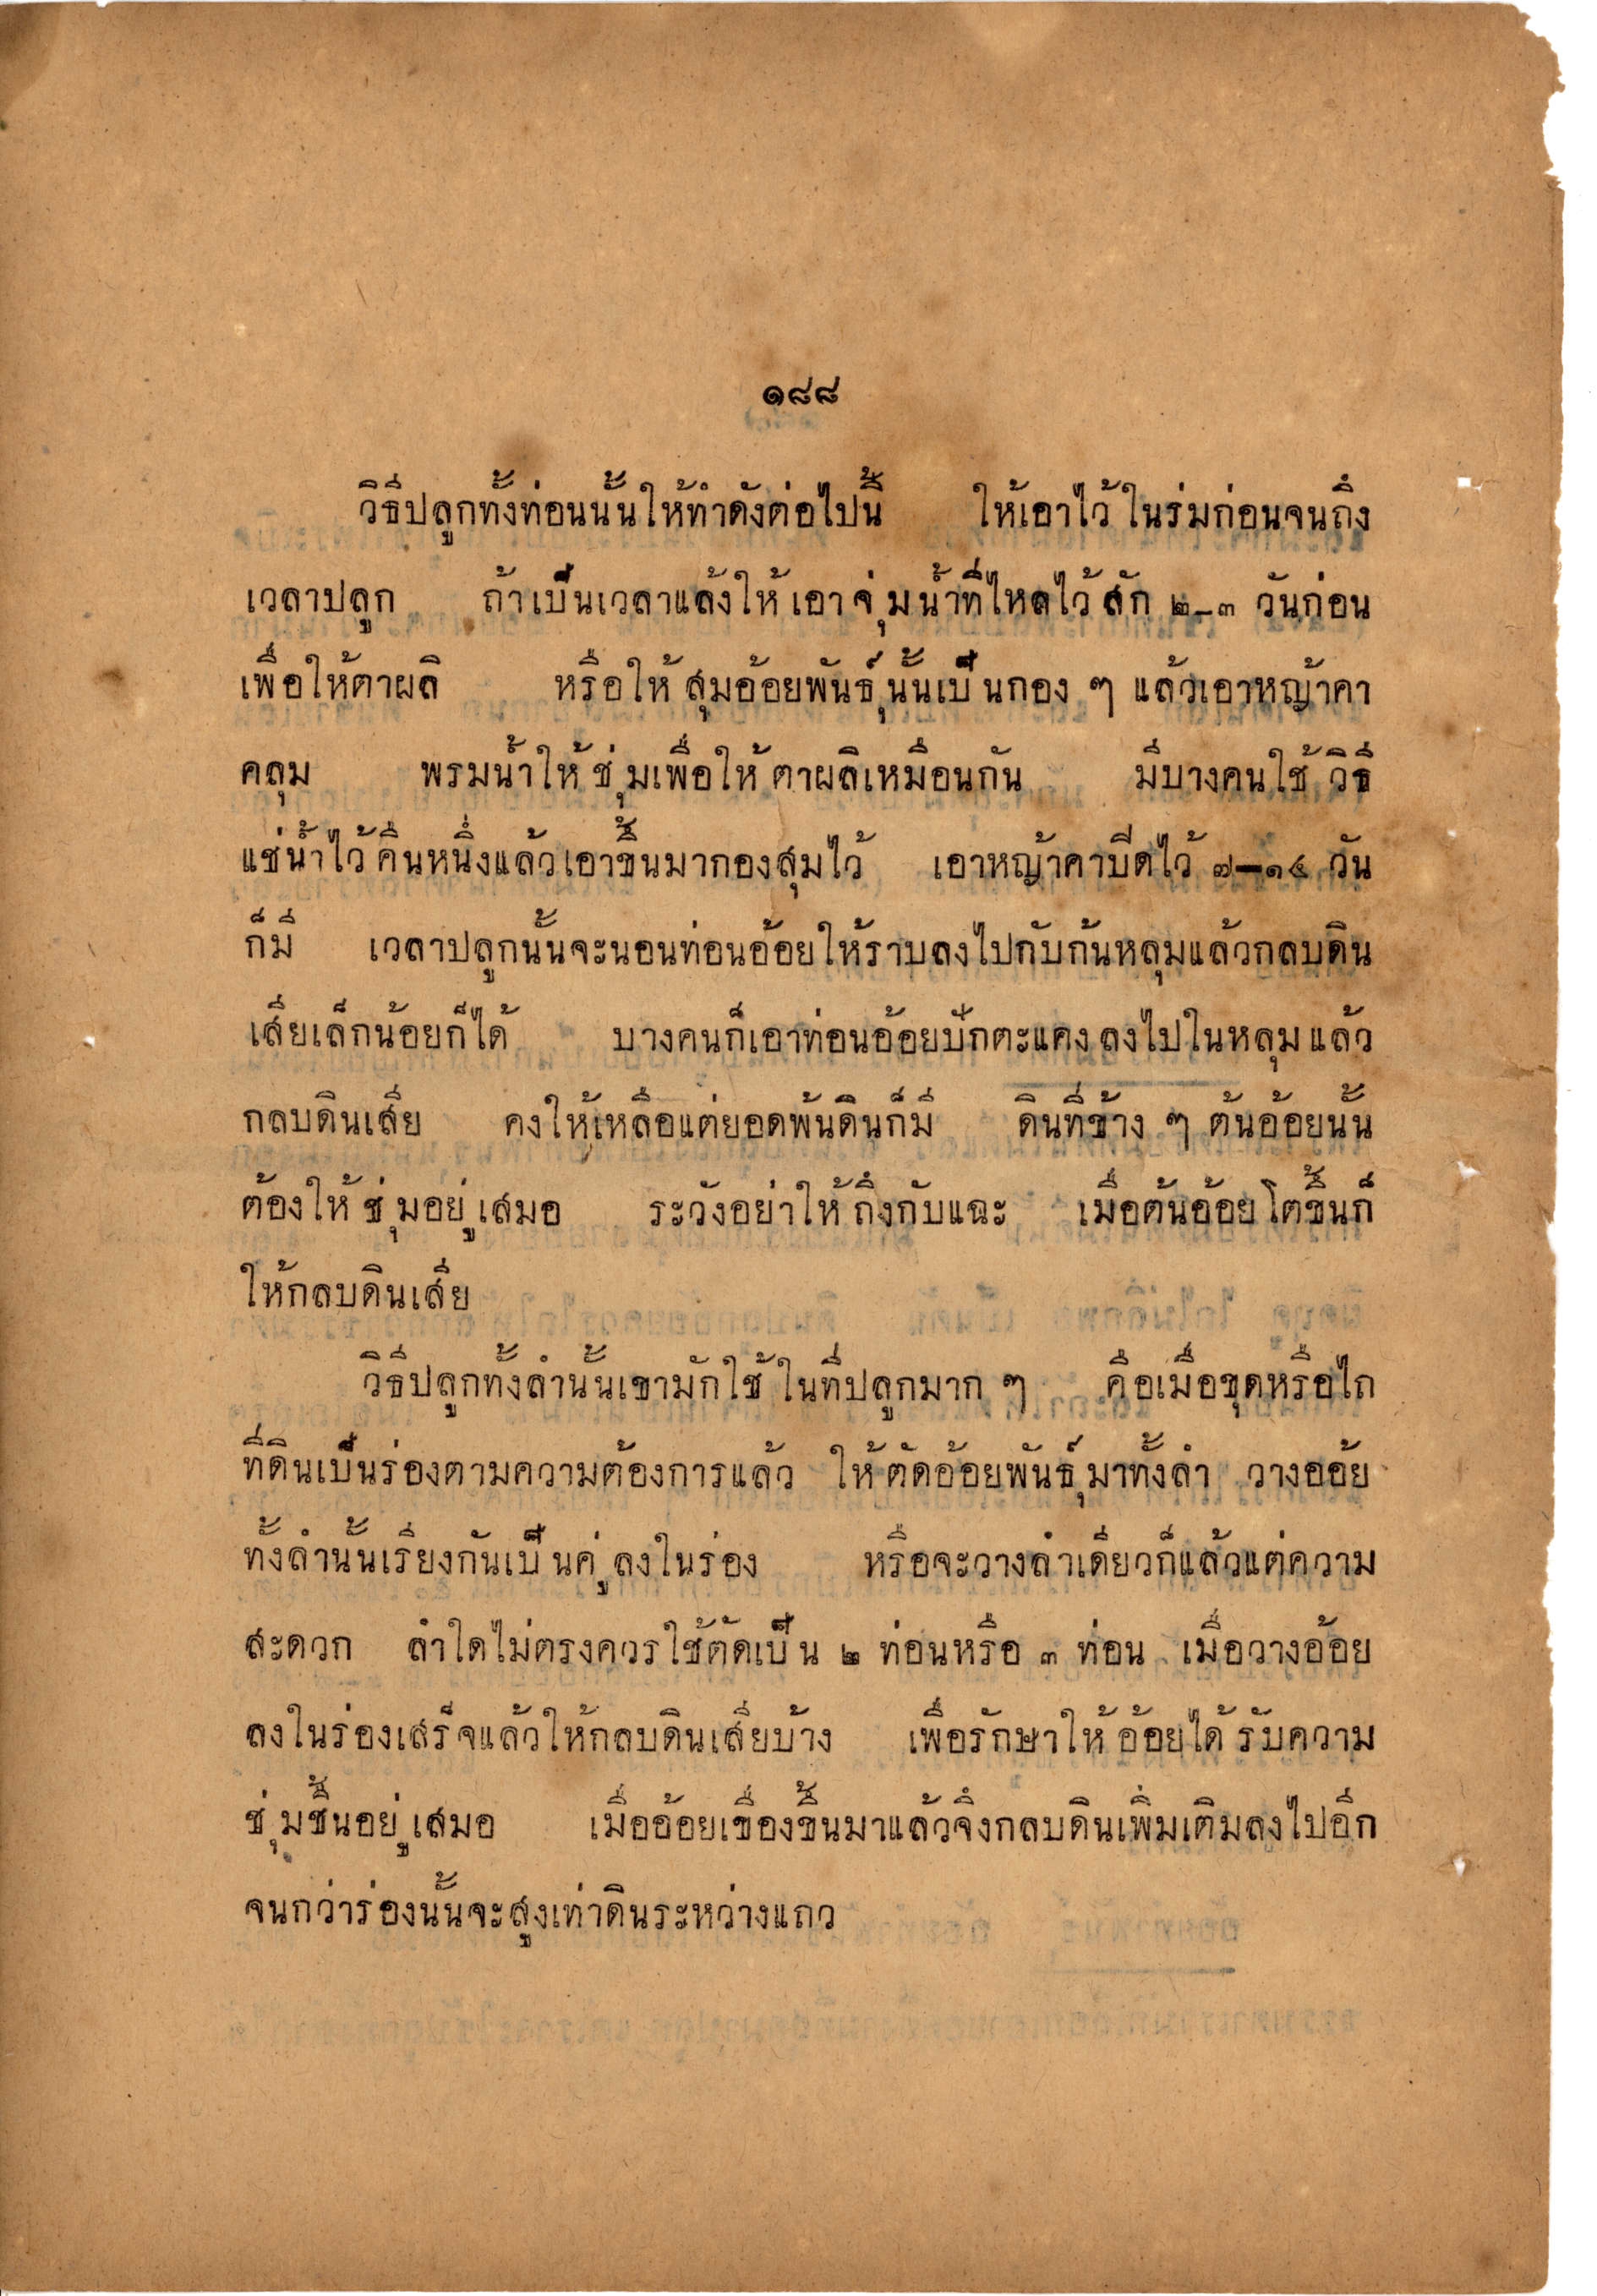 ๑๘๘
วิธีปลูกทั้งท่อนนั้นให้ทำดังต่อไปนี้ ให้เอาไว้ในร่มก่อนจนถึง
เวลาปลูก ถ้าเป็นเวลาแล้งให้เอาจุ่มน้ำที่ไหลไว้สัก ๒–๓ วันก่อน
เพื่อให้ตาผลิ หรือให้สุมอ้อยพันธุ์นั้นเป็นกอง ๆ แล้วเอาหญ้าคา
คลุม พรมน้ำให้ชุ่มเพื่อให้ตาผลิเหมือนกัน มีบางคนใช้วิธี
แช่น้ำไว้คืนหนึ่งแล้วเอาขึ้นมากองสุมไว้ เอาหญ้าคาปิดไว้ ๗–๑๔ วัน
ก็มี เวลาปลูกนั้นจะนอนท่อนอ้อยให้ราบลงไปกับก้นหลุมแล้วกลบดิน
เสียเล็กน้อยก็ได้ บางคนก็เอาท่อนอ้อยปักตะแคงลงไปในหลุมแล้ว
กลบดินเสีย คงให้เหลือแต่ยอดพ้นดินก็มี ดินที่ข้าง ๆ ต้นอ้อยนั้น
ต้องให้ชุ่มอยู่เสมอ ระวังอย่าให้ถึงกับแฉะ เมื่อต้นอ้อยโตขึ้นก็
ให้กลบดินเสีย
วิธีปลูกทั้งลำนั้นเขามักใช้ในที่ปลูกมาก ๆ คือเมื่อขุดหรือไถ
ที่ดินเป็นร่องตามความต้องการแล้ว ให้ตัดอ้อยพันธุ์มาทั้งลำ วางออ้ย
ทั้งลำนั้นเรียงกันเป็นคู่ลงในร่อง หรือจะวางลำเดียวก็แล้วแต่ความ
สะดวก ลำใดไม่ตรงควรใช้ตัดเป็น ๒ ท่อนหรือ ๓ ท่อน เมื่อวางอ้อย
ลงในร่องเสร็จแล้วให้กลบดินเสียบ้าง เพื่อรักษาให้อ้อยได้รับความ
ชุ่มชื้นอยู่เสมอ เมื่ออ้อยเขื่องขึ้นมาแล้วจึงกลบดินเพิ่มเติมลงไปอีก
จนกว่าร่องนั้นจะสูงเท่าดินระหว่างแถว